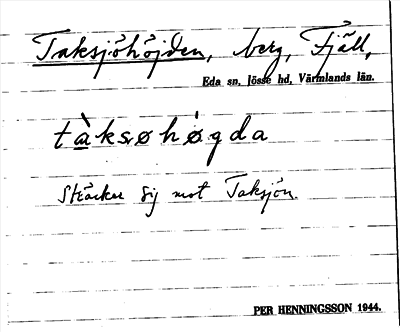 Taksjöhöjden, berg, Fjäll,
Eda sn, Jösse hd, Värmlands län.
tàksøhø̀gda
Sträcker sig mot Taksjön.
PER HENNINGSSON 1944.